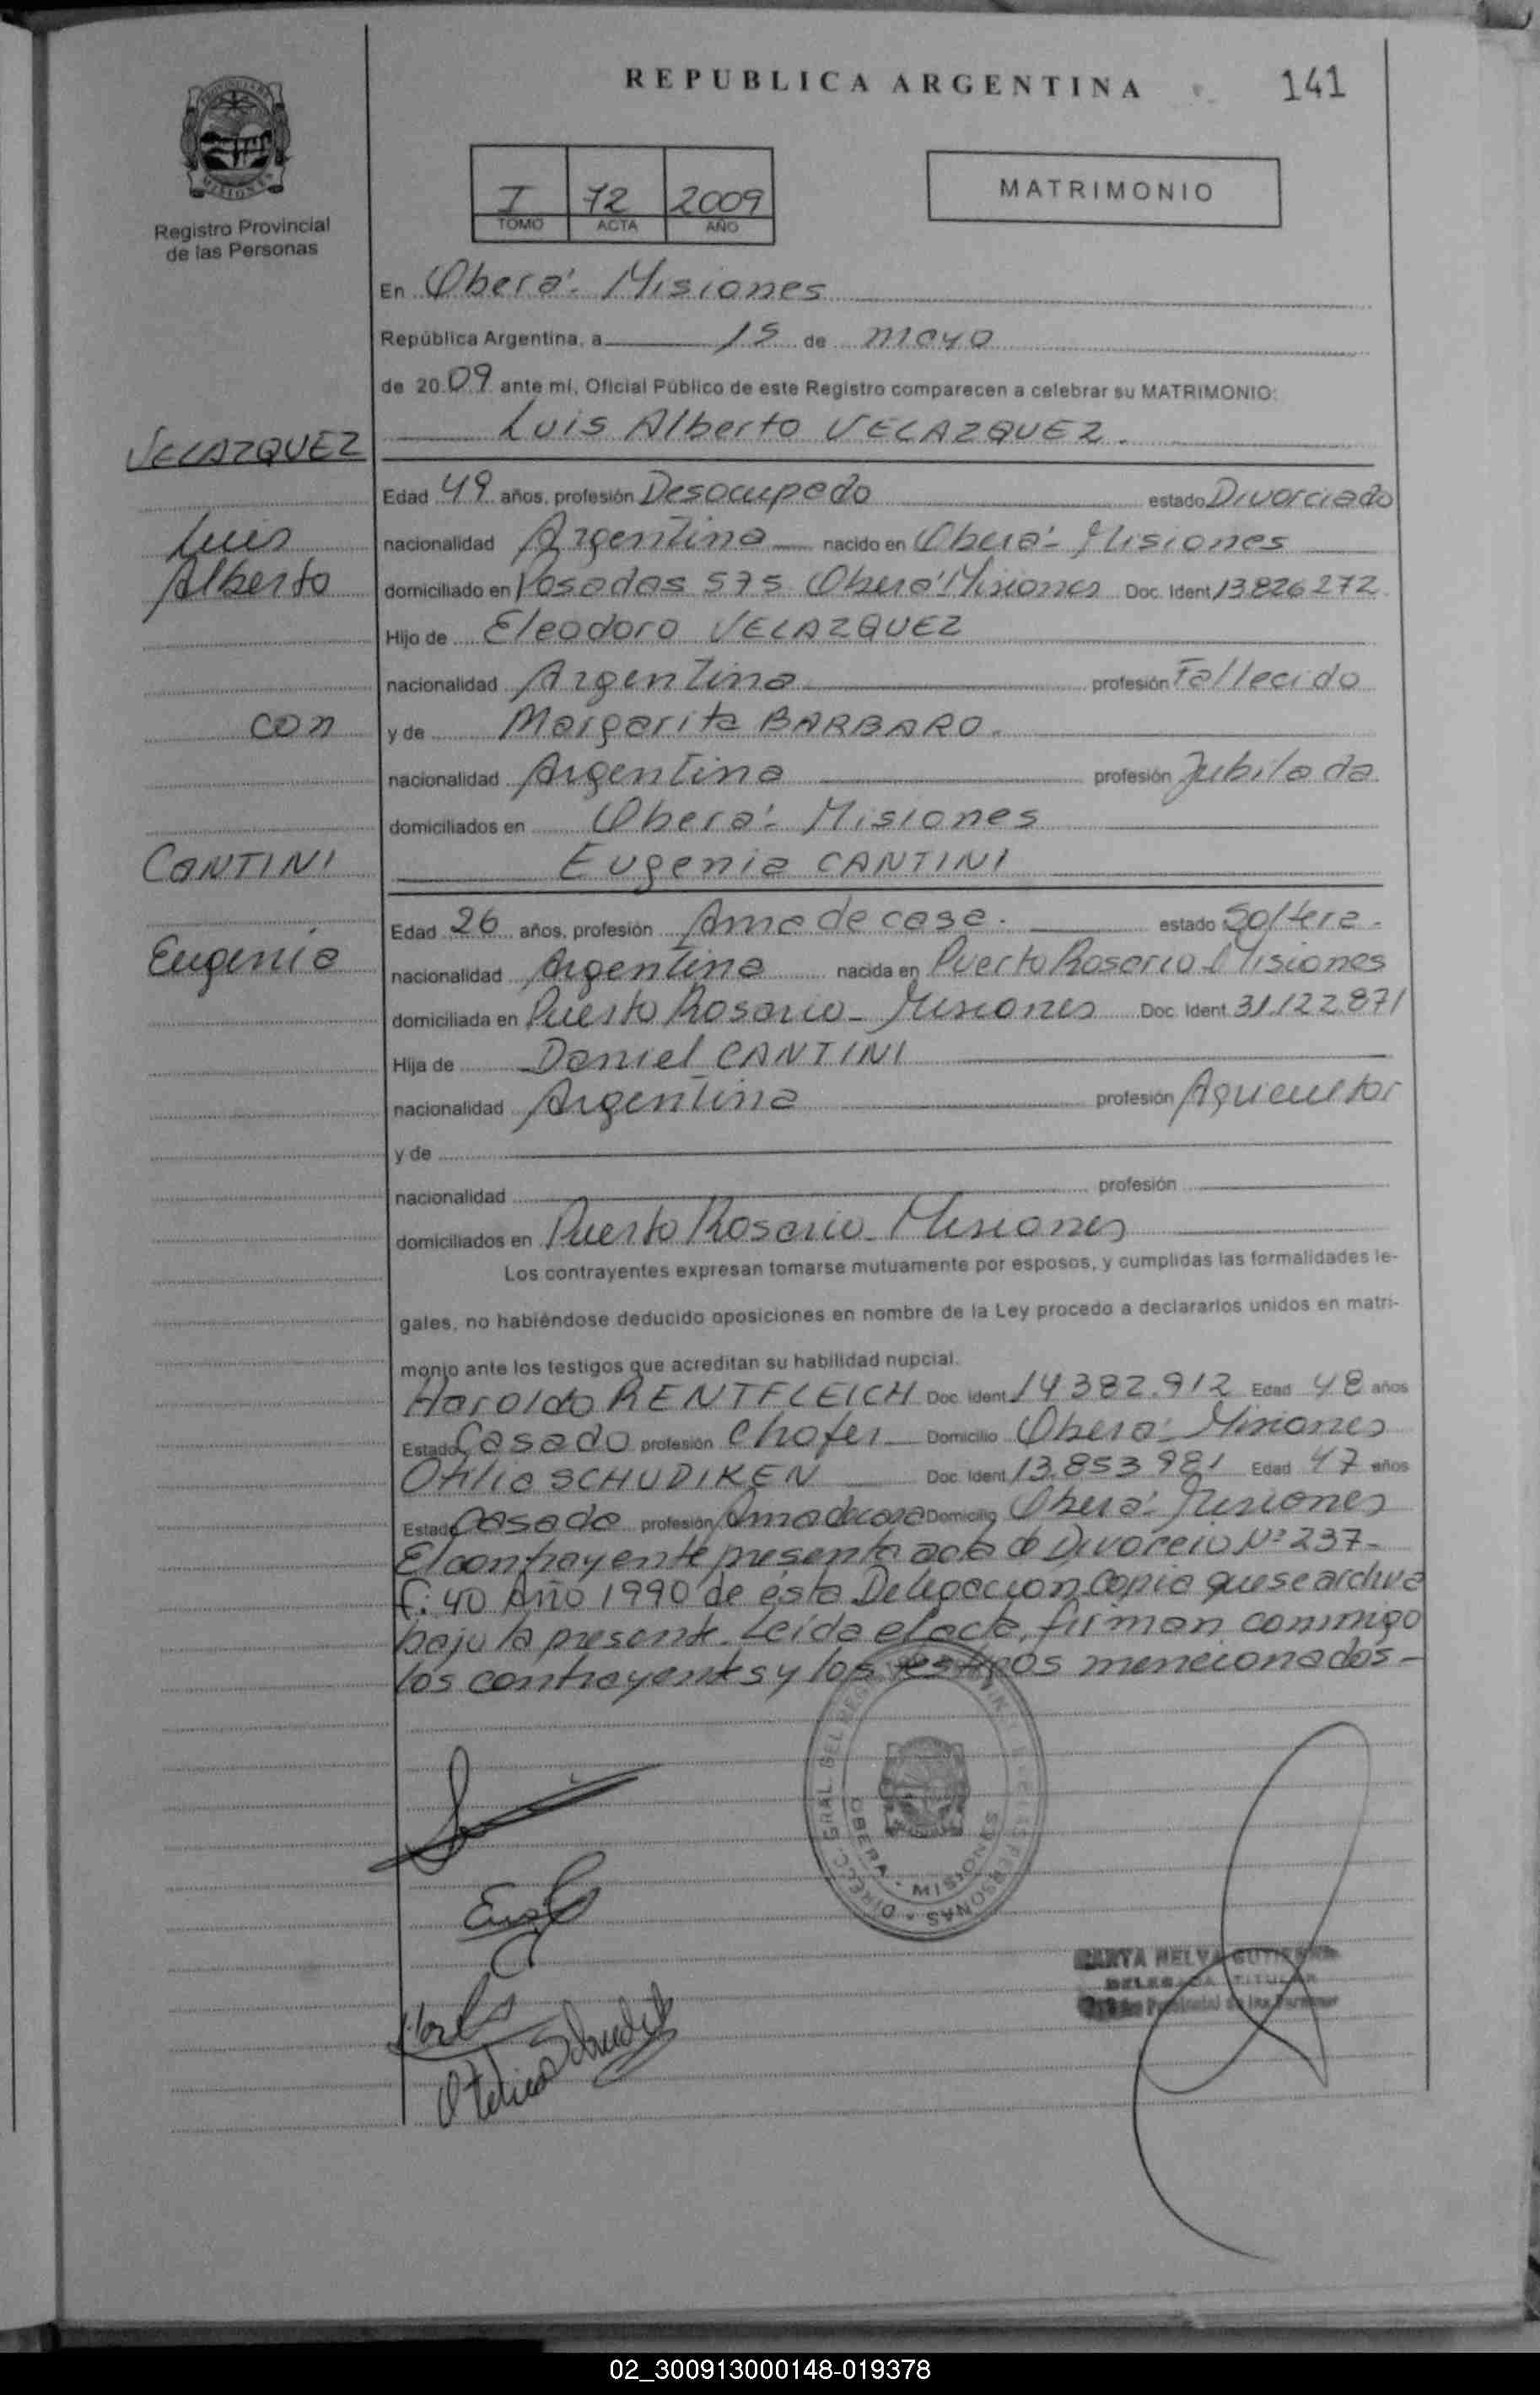 REPUBLICA ARGENTINA
141
PROVINCIA DE
MISIONES
Registro Provincial
de las Personas
I 72 2009
TOMO ACTA AÑO
MATRIMONIO
En Oberá - Misiones
República Argentina, a 15 de mayo
de 2009 ante mí, Oficial Público de este Registro comparecen a celebrar su MATRIMONIO:
VELAZQUEZ
Luis Alberto VELAZQUEZ.
Edad 49 años, profesión Desocupado estado Divorciado
Luis
nacionalidad Argentina nacido en Oberá - Misiones
Alberto
domiciliado en Posadas 575 Oberá Misiones Doc. Ident 13.826.272
Hijo de Eleodoro VELAZQUEZ
nacionalidad Argentina profesión Fallecido
con
y de Margarita BARBARO.
nacionalidad Argentina profesión Jubilada
domiciliados en Oberá - Misiones
CANTINI
Eugenia CANTINI
Edad 26 años, profesión Ama de casa. estado Soltera.
Eugenia
nacionalidad Argentina nacida en Puerto Rosario Misiones
domiciliada en Puerto Rosario - Misiones Doc. Ident. 31.122.871
Hija de Daniel CANTINI
nacionalidad Argentina profesión Agricultor
y de
nacionalidad profesión
domiciliados en Puerto Rosario - Misiones
Los contrayentes expresan tomarse mutuamente por esposos, y cumplidas las formalidades le-
gales, no habiéndose deducido oposiciones en nombre de la Ley procedo a declararlos unidos en matri-
monio ante los testigos que acreditan su habilidad nupcial.
Haroldo RENTFLEICH Doc. Ident. 14.382.912 Edad 48 años
Estado Casado profesión Chofer Domicilio Oberá - Misiones
Otilia SCHUDIKEN Doc. Ident. 13.853.981 Edad 47 años
Estado Casada profesión Ama de casa Domicilio Oberá - Misiones
El contrayente presenta acta de Divorcio Nº 237-
F: 40 Año 1990 de ésta Delegacion Copia que se archiva
bajo la presente. Leída el acta, firman conmigo
los contrayentes y los testigos mencionados -
OBERA - MISIONES
PERSONAS
Otilia Schudik
MARTA NELVA
DELEGADA TITULAR
Provincial de las Personas
02_300913000148-019378